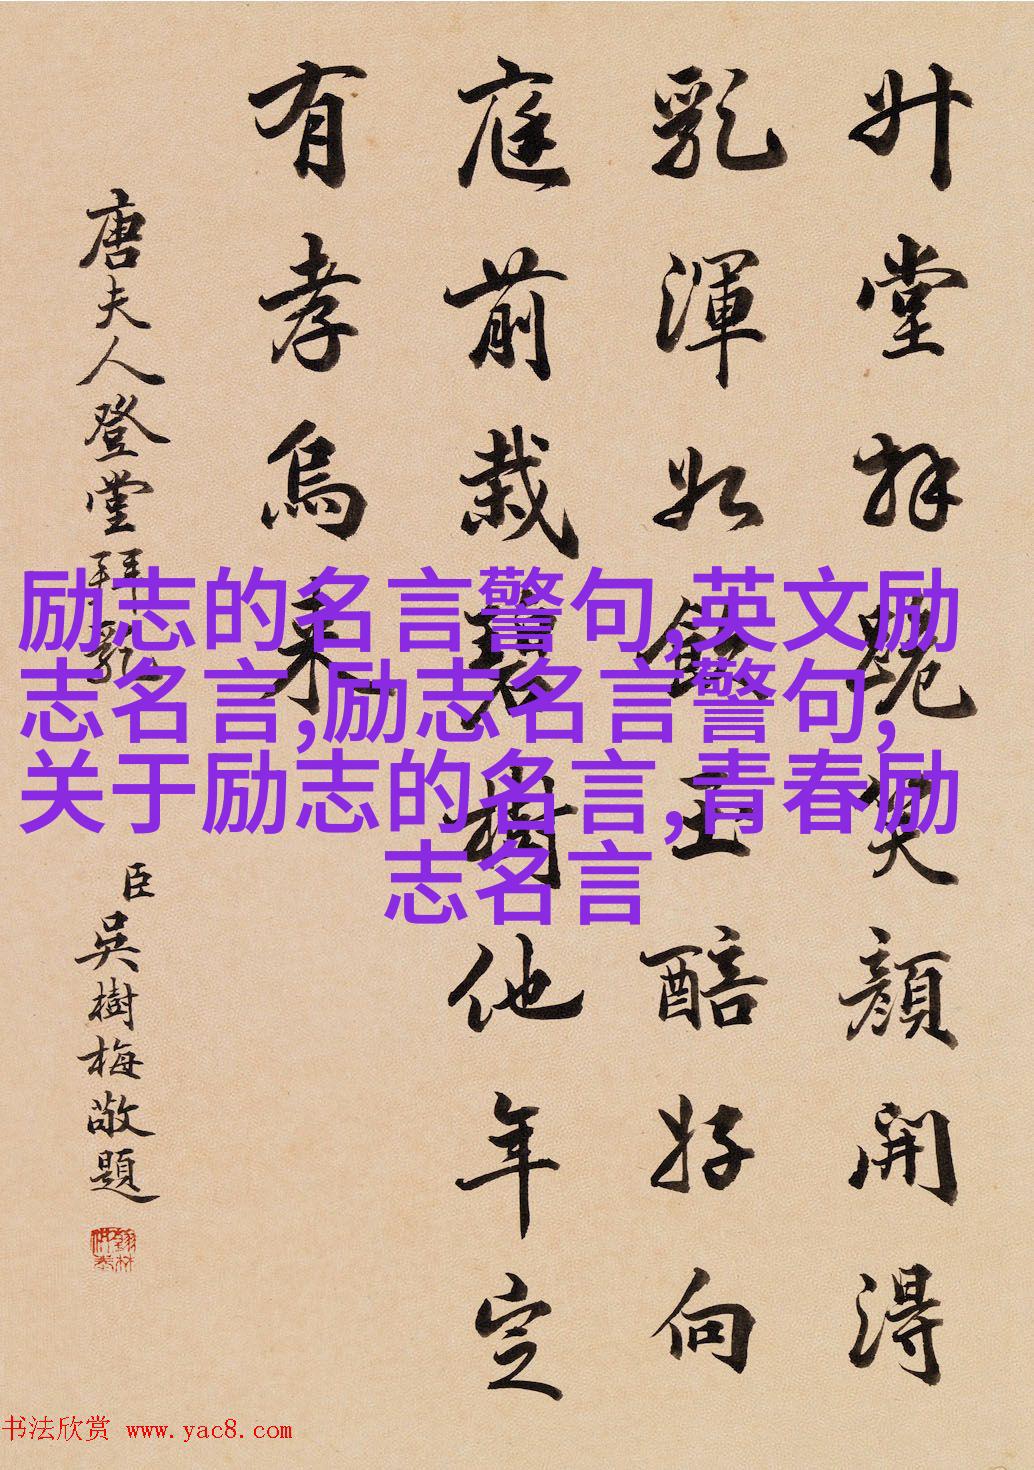 升堂拜笑顔開得
乳渾如飲玉醅好向
庭前栽碧樹他年定
有孝烏來
唐夫人登堂拜乳
臣吳樹梅敬題
励志的名言警句,英文励
志名言,励志名言警句,
关于励志的名言,青春励
志名言
书法欣赏 www.yac8.com